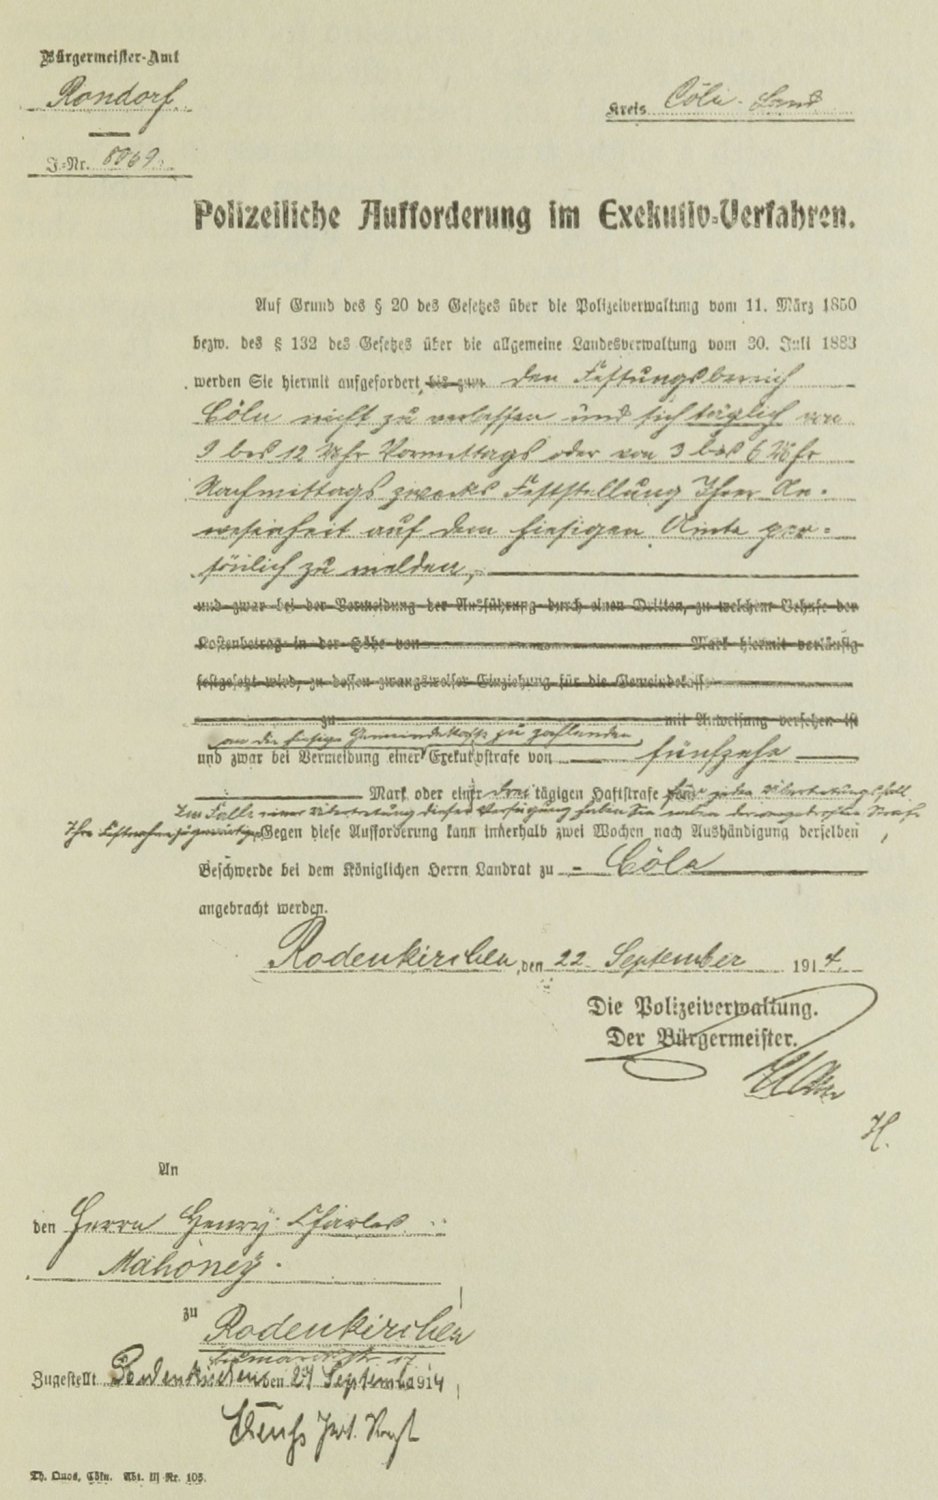 Bürgermeister-Amt
Rondorf
Kreis Cöln-Land
J.-Nr. 8069
Polizeiliche Aufforderung im Exekutiv-Verfahren.
Auf Grund des § 20 des Gesetzes über die Polizeiverwaltung vom 11. März 1850
bezw. des § 132 des Gesetzes über die allgemeine Landesverwaltung vom 30. Juli 1883
werden Sie hiermit aufgefordert, bis zum den Festungsbereich
Cöln nicht zu verlassen und sich täglich von
9 bis 12 Uhr Vormittags oder von 3 bis 6 Uhr
Nachmittags zwecks Feststellung Ihrer An-
wesenheit auf dem hiesigen Amte per-
sönlich zu melden,
und zwar bei der Vermeidung der Ausführung durch einen Dritten, zu welchem Behufe der
Kostenbetrag in der Höhe von Mark hiermit vorläufig
festgesetzt wird, zu dessen zwangsweiser Einziehung für die Gemeindekasse
zu mit Anweisung versehen ist
an die hiesige Gemeindekasse zu zahlenden
und zwar bei Vermeidung einer Exekutivstrafe von fünfzehn
Mark oder einer dreitägigen Haftstrafe für jeden Übertretungsfall
Im Falle einer Übertretung dieser Verfügung haben Sie neben der angedrohten Strafe
Ihre Festnahme zu gewärtigen. Gegen diese Aufforderung kann innerhalb zwei Wochen nach Aushändigung derselben
Beschwerde bei dem Königlichen Herrn Landrat zu Cöln
angebracht werden.
Rodenkirchen, den 22. September 1914.
Die Polizeiverwaltung.
Der Bürgermeister.
H.
An
den Herrn Henry Charles
Mahoney
zu Rodenkirchen
Zugestellt Rodenkirchen den 24 September 1914
Th. Quos, Cöln. Abt. III Nr. 103.